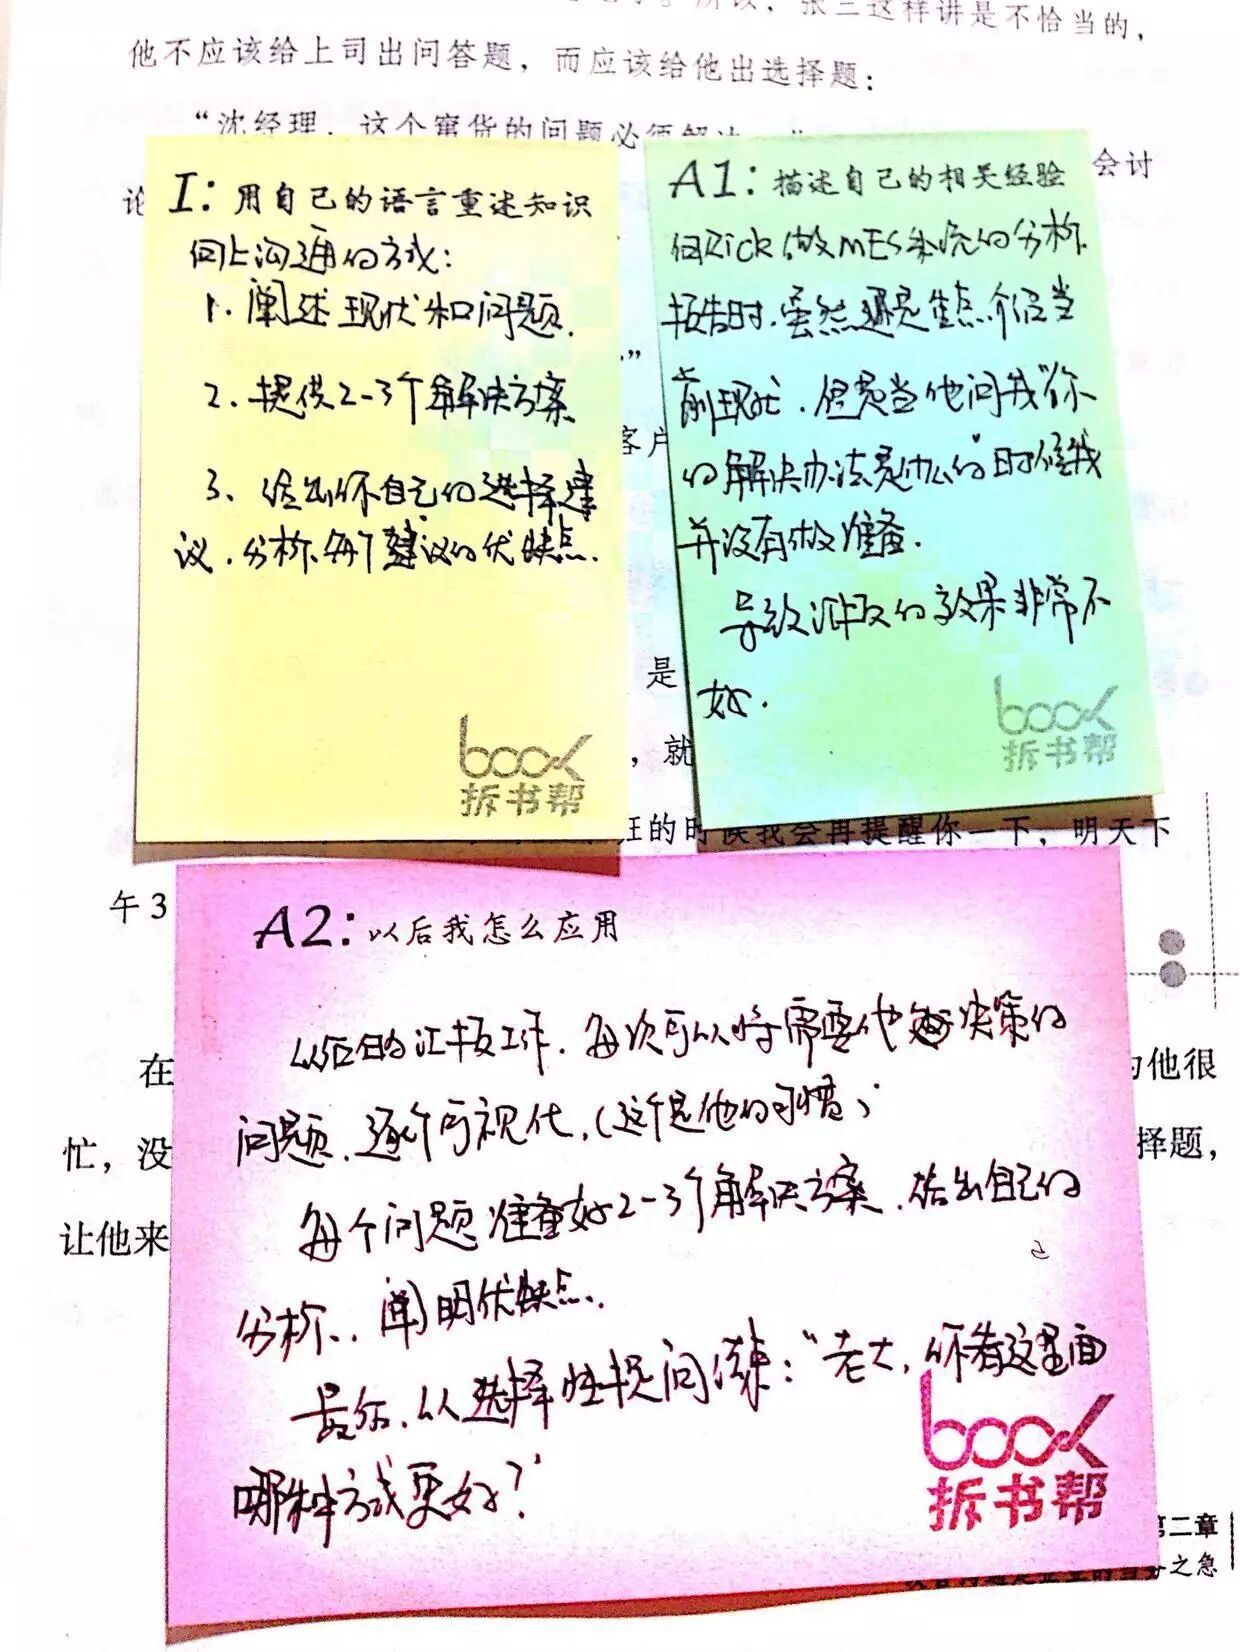 张三这样讲是不恰当的，
他不应该给上司出问答题，而应该给他出选择题：
“沈经理，这个窜货的问题必须解决
会讨
论
I：用自己的语言重述知识
向上沟通的方式：
1. 阐述现状和问题.
2. 提供2-3个解决方案
3、给出你自己的选择建
议，分析每个建议的优缺点.
book
拆书帮
A1：描述自己的相关经验
向Rick做MES系统的分析
报告时，虽然还是先介绍当
前现状，但是当他问我“你
的解决办法是什么”的时候我
并没有做准备.
导致汇报的效果非常不
好.
book
拆书帮
”
客户
是
，就
班的时候我会再提醒你一下，明天下
午3
A2：以后我怎么应用
以后的汇报工作，每次可以将需要他决策的
问题，逐个可视化，（这个是他的习惯）
每个问题准备好2-3个解决方案，给出自己的
分析，阐明优缺点.
最后，以选择性提问结束：“老大，你看这里面
哪种方式更好？”
book
拆书帮
在
为他很
忙，没
择题，
让他来
第二章
之急